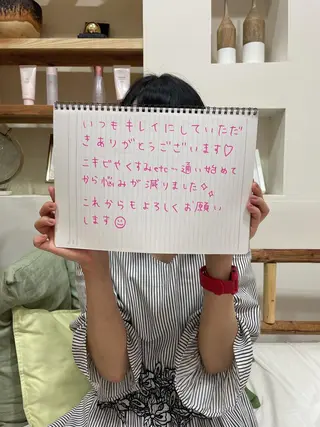 いつもキレイにしていただ
きありがとうございます♡
ニキビやくすみetc…通い始めて
から悩みが減りました✧✧
これからもよろしくお願い
します☺